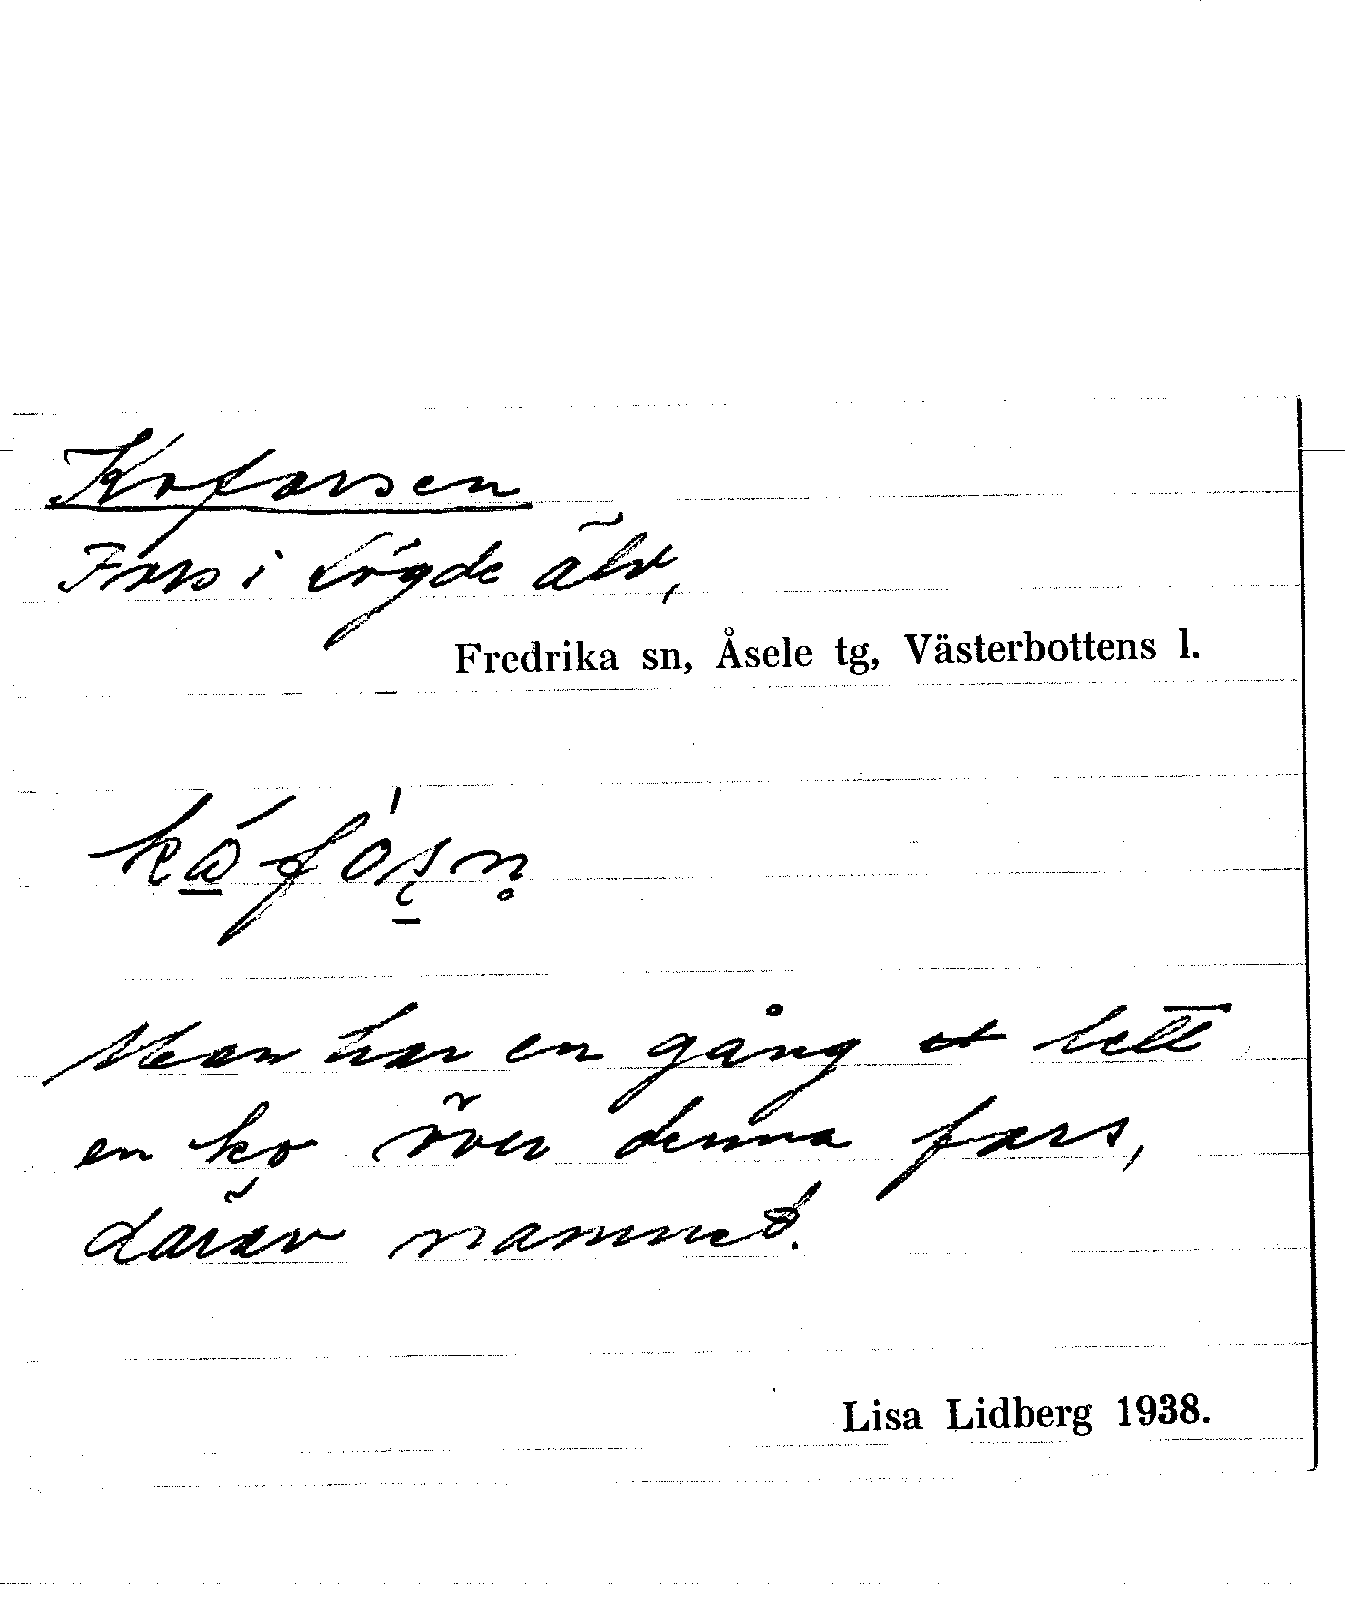 Koforsen
Fors i Lögde älv,
Fredrika sn, Åsele tg, Västerbottens l.
Man har en gång lett
en ko över denna fors,
därav namnet.
Lisa Lidberg 1938.